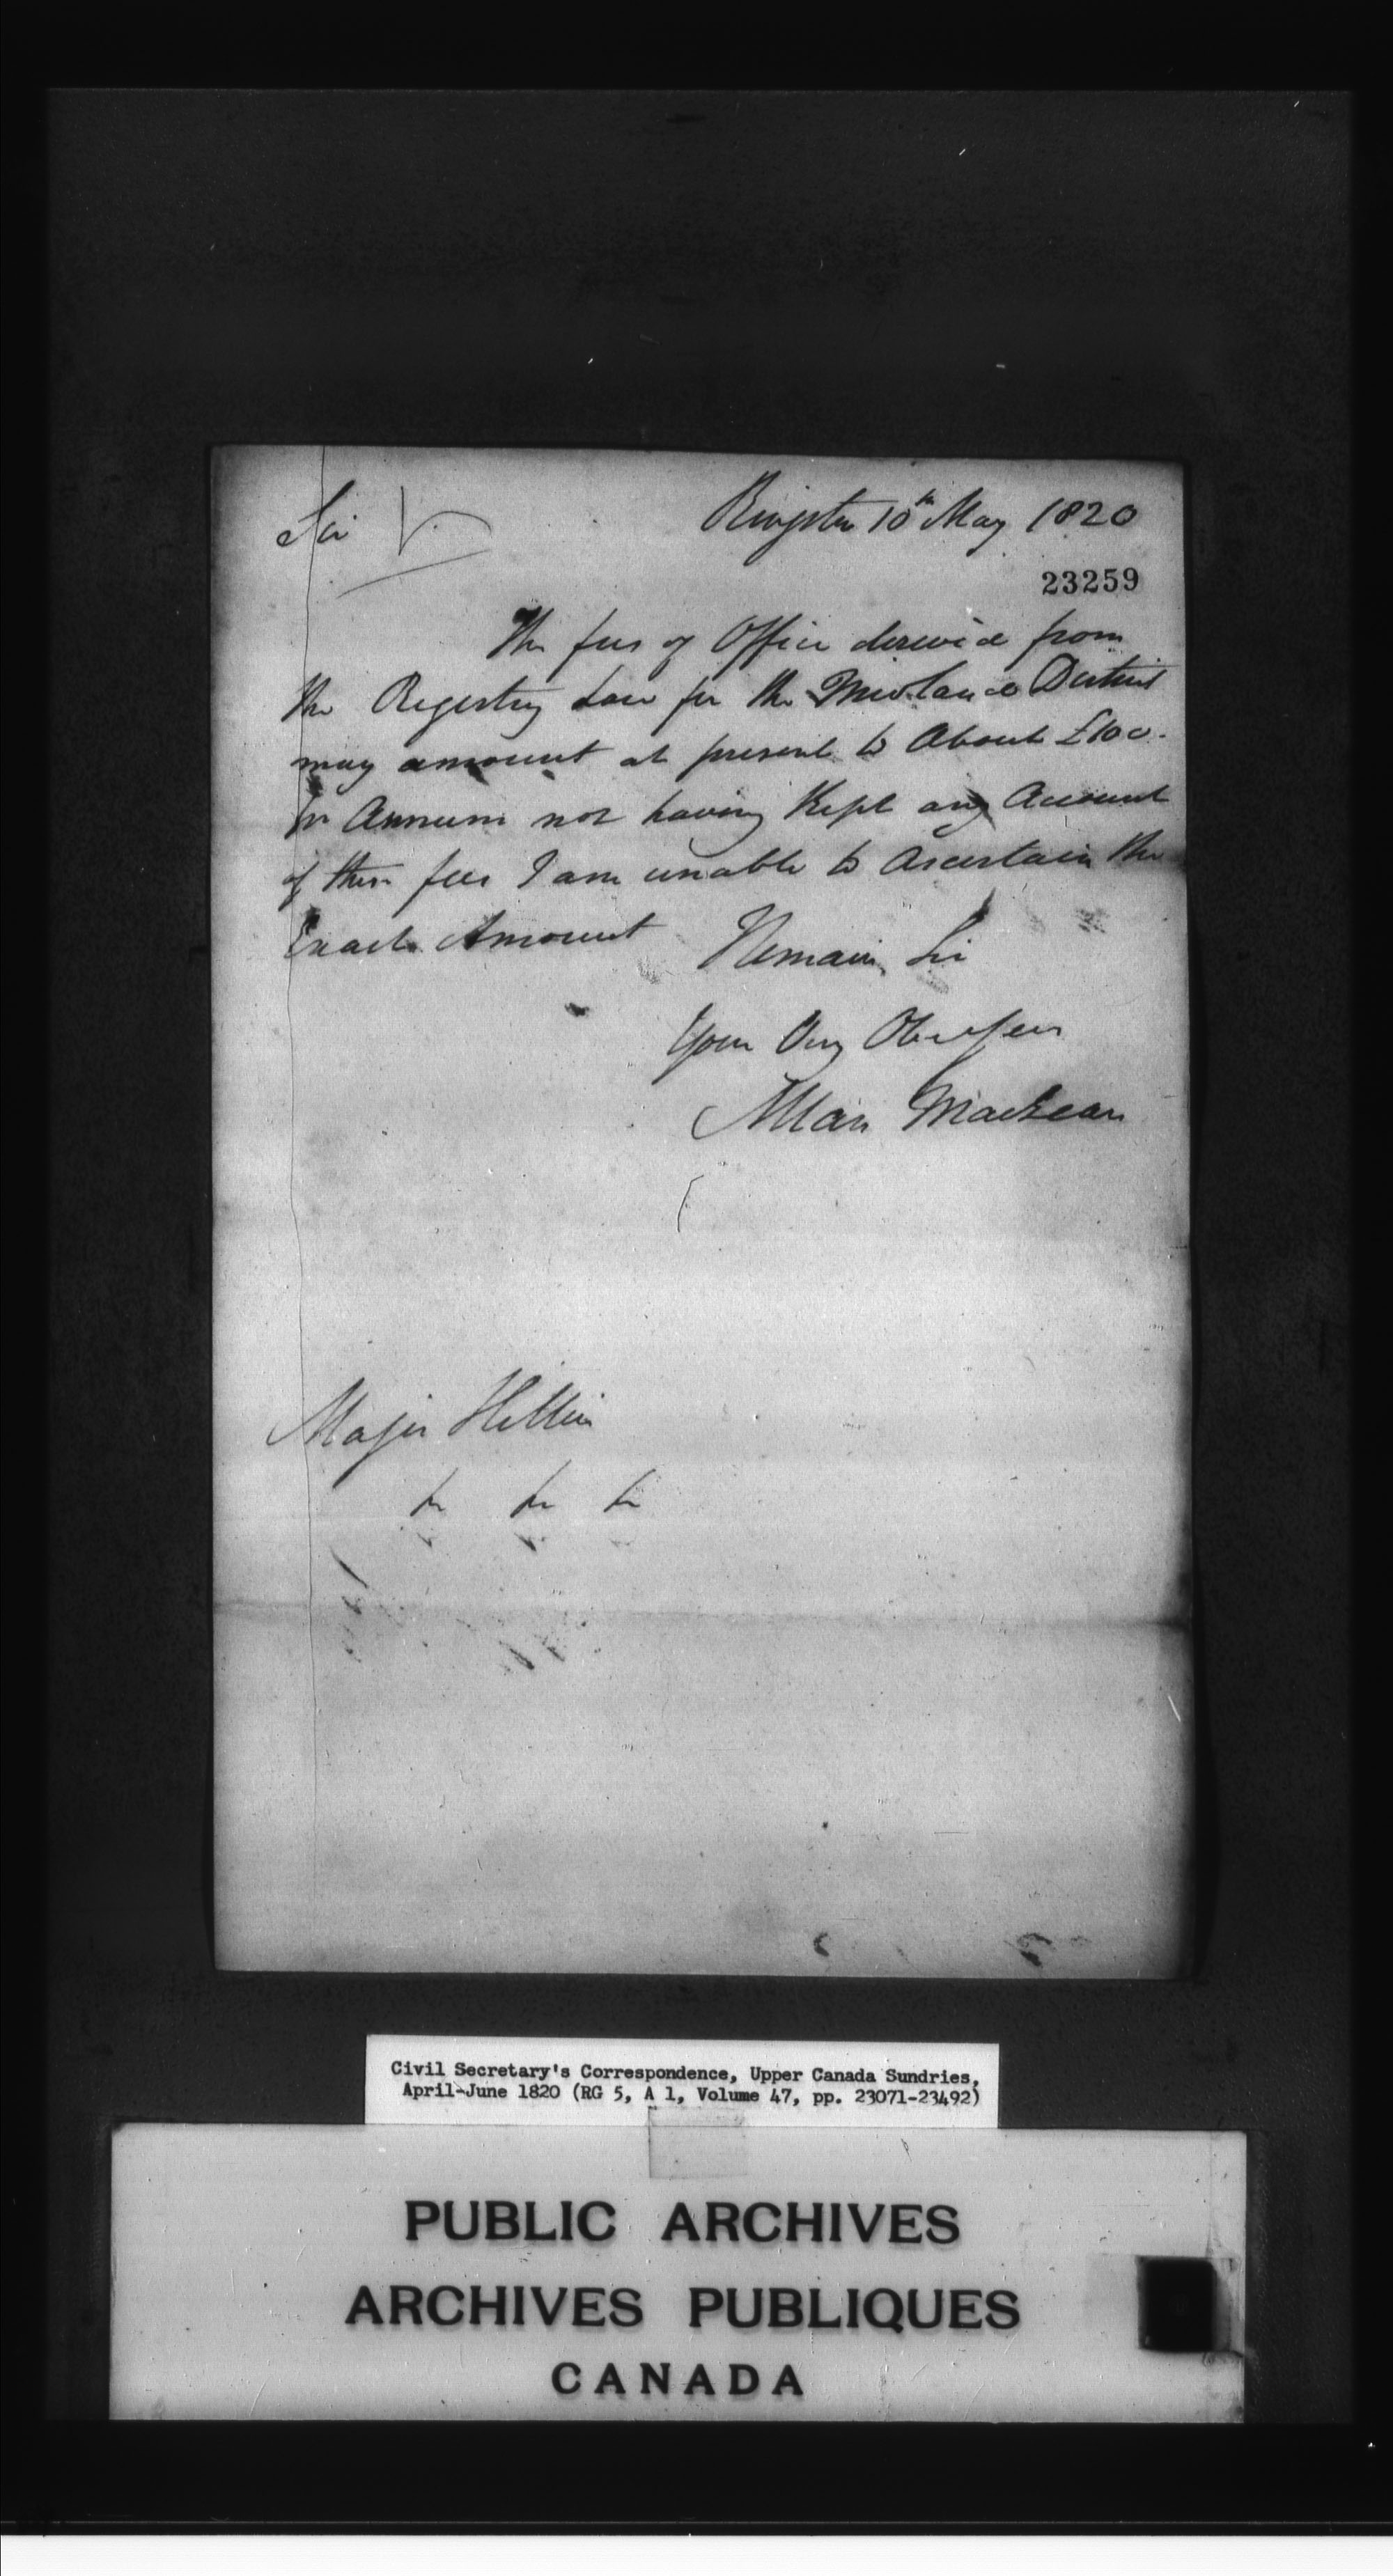 Sir
Kingston 10th May 1820
23259
The fees of Office dereived from
the Regestry Law for the Midland District
may amount at present to About £100.
Pr Annum not having Kept any Account
of these fees I am unable to Ascertain the
Exact Amount
I Remain Sir
Your Very Obet Ser
Allan MacLean
Major Hillier
&c &c &c
Civil Secretary's Correspondence, Upper Canada Sundries,
April-June 1820 (RG 5, A 1, Volume 47, pp. 23071-23492)
PUBLIC ARCHIVES
ARCHIVES PUBLIQUES
CANADA